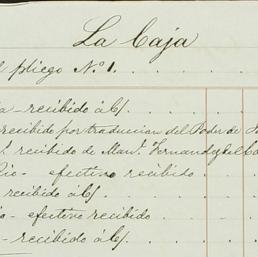 La Caja
pliego Nº 1.
a - recibido à C/
recibido por traduccion del Poder de
recibido de Man.l Fernandez del Ca
io - efectivo recibido
recibido à C/
o - efectivo recibido
- recibido à C/